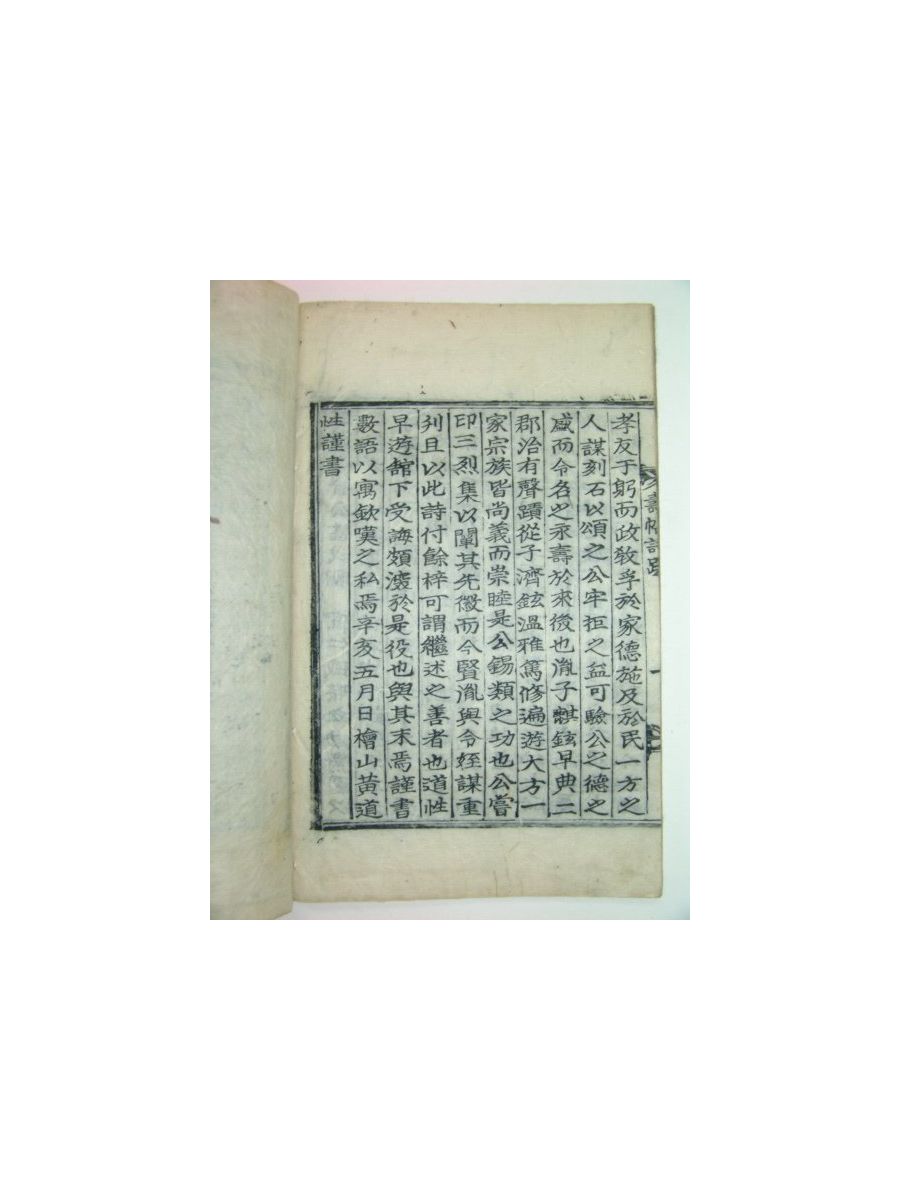 孝友于躬而政教孚於家德施及於民一方之
人謀刻石以頌之公牢拒之益可驗公之德之
盛而令名之永壽於來後也胤子麒鉉早典二
郡治有聲蹟從子濟鉉溫雅篤修遍遊大方一
家宗族皆尚義而崇睦是公錫類之功也公嘗
印三烈集以闡其先徽而今賢胤與令姪謀重
刋且以此詩付餘梓可謂繼述之善者也道性
早遊舘下受誨頗深於是役也與其末焉謹書
數語以寓歎嘆之私焉辛亥五月日檜山黃道
性謹書